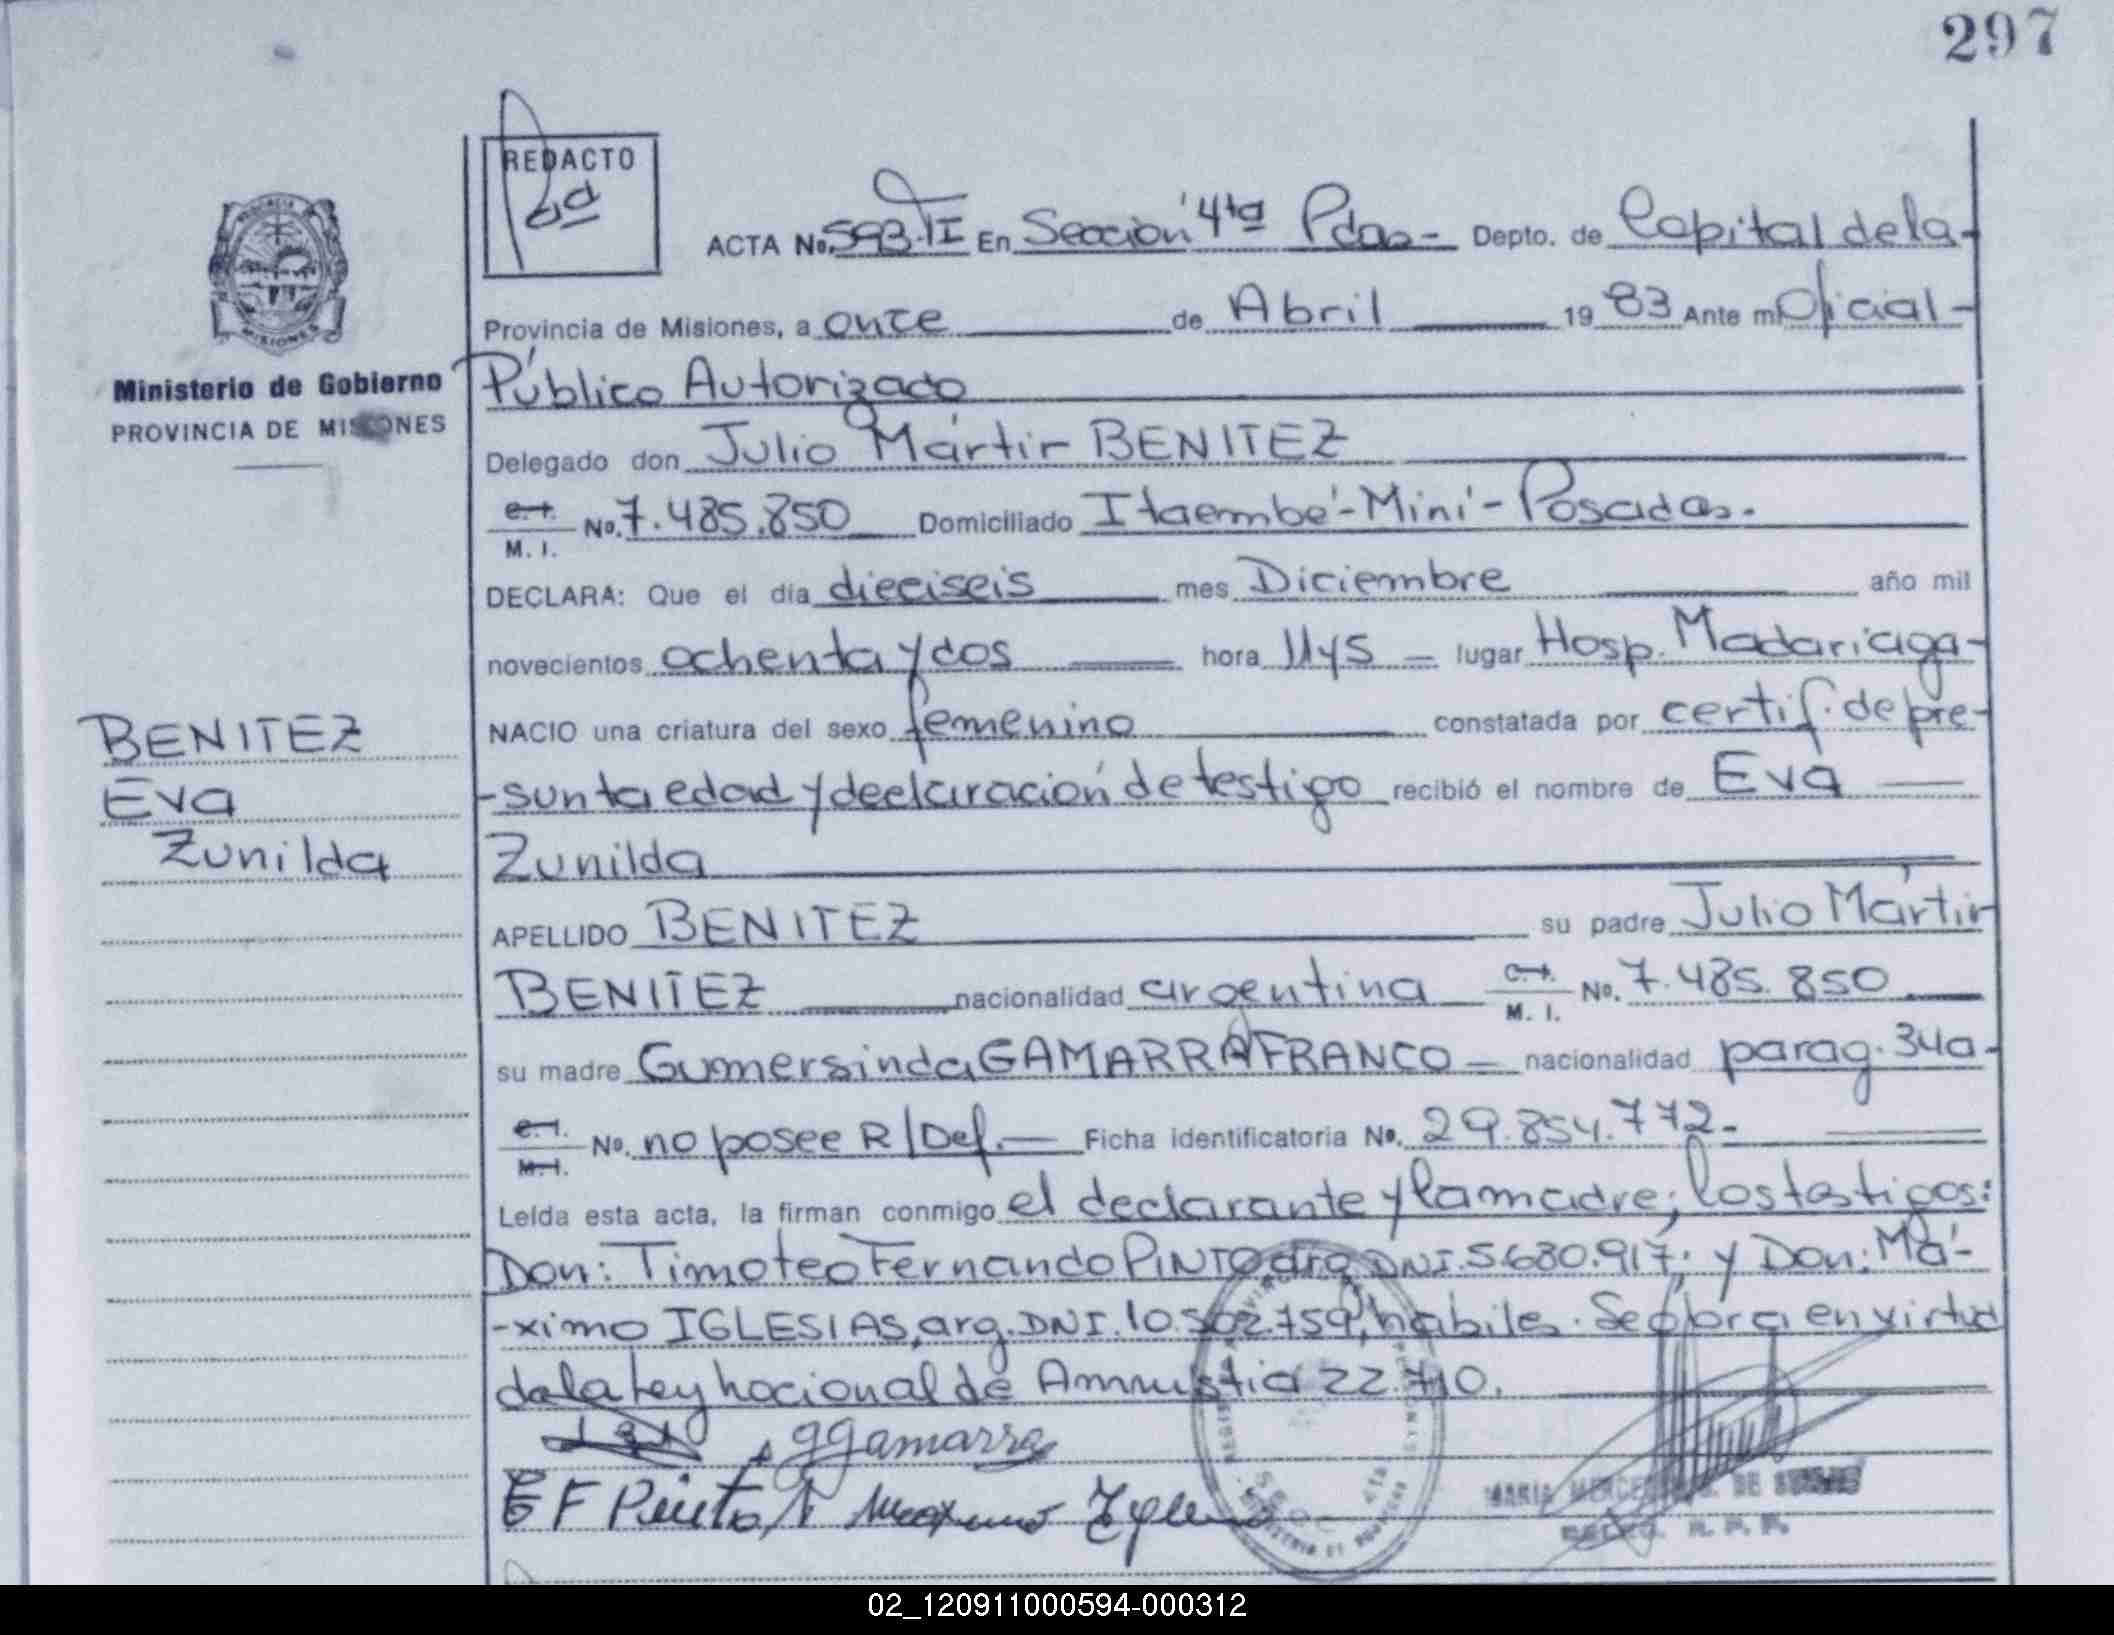 297
REDACTO
ACTA No. 593-TI En Sección 4ta Pdas- Depto. de Capital de la-
Provincia de Misiones, a once de Abril 1983 Ante mi Oficial-
Ministerio de Gobierno
PROVINCIA DE MISIONES
Público Autorizado
Delegado don Julio Mártir BENITEZ
C. I. M. I. No. 7.485.850 Domiciliado Itaembé-Miní-Posadas.
DECLARA: Que el día dieciseis mes Diciembre año mil
novecientos ochenta y dos hora 11y5 - lugar Hosp. Madariaga-
NACIO una criatura del sexo femenino constatada por certif. de pre-
-sunta edad y declaración de testigo recibió el nombre de Eva
Zunilda
BENITEZ
Eva
Zunilda
APELLIDO BENITEZ su padre Julio Mártir
BENITEZ nacionalidad argentina C. I. M. I. No. 7.485.850
su madre Gumersinda GAMARRA FRANCO - nacionalidad parag. 34a-
C. I. M. I. No. no posee R/Def. Ficha identificatoria No. 29.854.772-
Leída esta acta, la firman conmigo el declarante y la madre; los testigos:
Don: Timoteo Fernando PINTO arg. DNI. 5.680.917; y Don: Má-
-ximo IGLESIAS, arg. DNI. 10.502.759, hábiles. Se labra en virtud
de la Ley nacional de Amnistia 22.710.
GGamarra
F Pinto Maximo Igle
MARIA MERCEDES DE
02_120911000594-000312